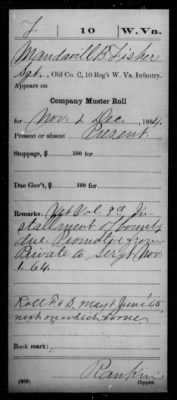 F | 10 | W. Va.
Mandavill B. Fisher
Sgt., Old Co. C, 10 Reg't W. Va. Infantry.
Appears on
Company Muster Roll
for Nov. & Dec., 1864.
Present or absent Present
Stoppage, $ 100 for
Due Gov't, $ 100 for
Remarks: Vet Vol. 3rd In-
stallment of bounty
due Promoted from
Private to Sergt Nov.
1. 64.
Roll F & S, May & June 65,
next on which borne
Book mark:
Rankin
(858) Copyist.